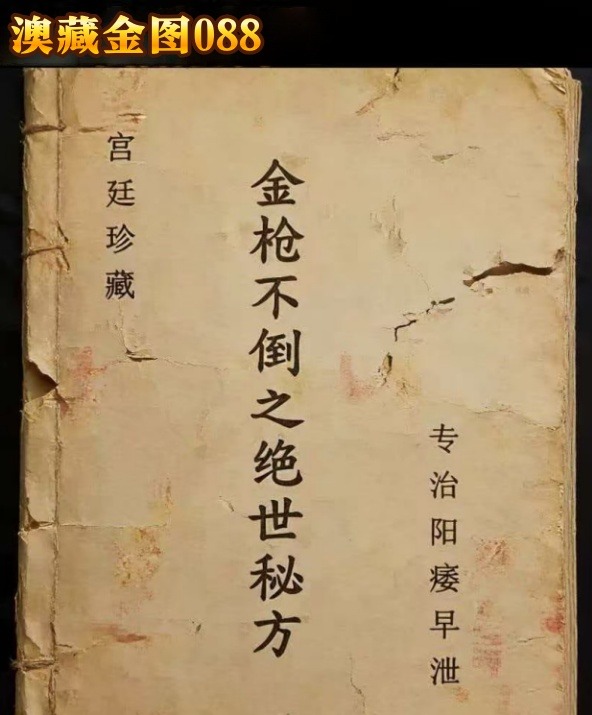 澳藏金图088
宫廷珍藏
金枪不倒之绝世秘方
专治阳痿早泄